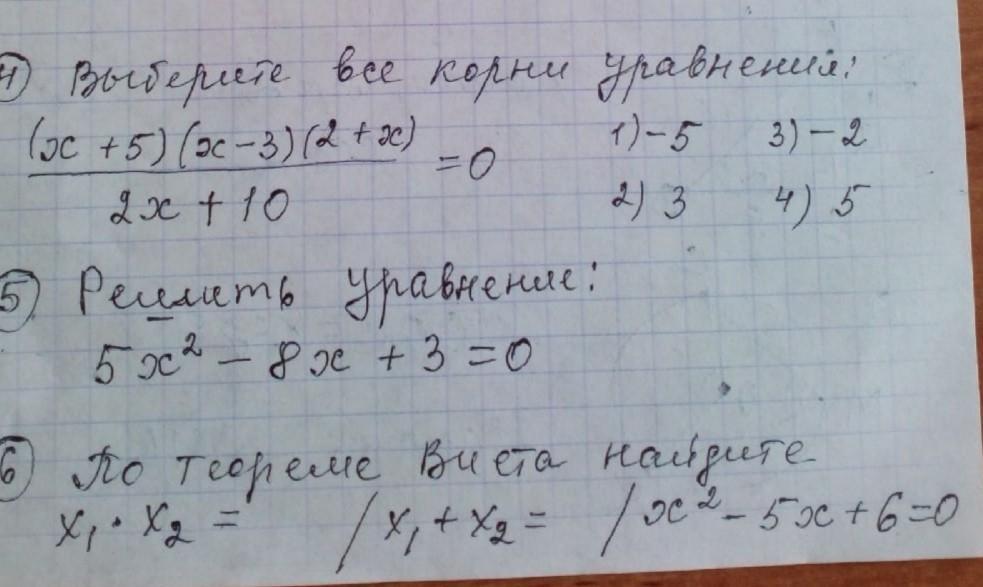 4) Выберите все корни уравнения:
(x + 5)(x - 3)(2 + x) / 2x + 10 = 0
1) -5 3) -2
2) 3 4) 5
5) Решить уравнение:
5x² - 8x + 3 = 0
6) По теореме Виета найдите
x₁ · x₂ = / x₁ + x₂ = / x² - 5x + 6 = 0